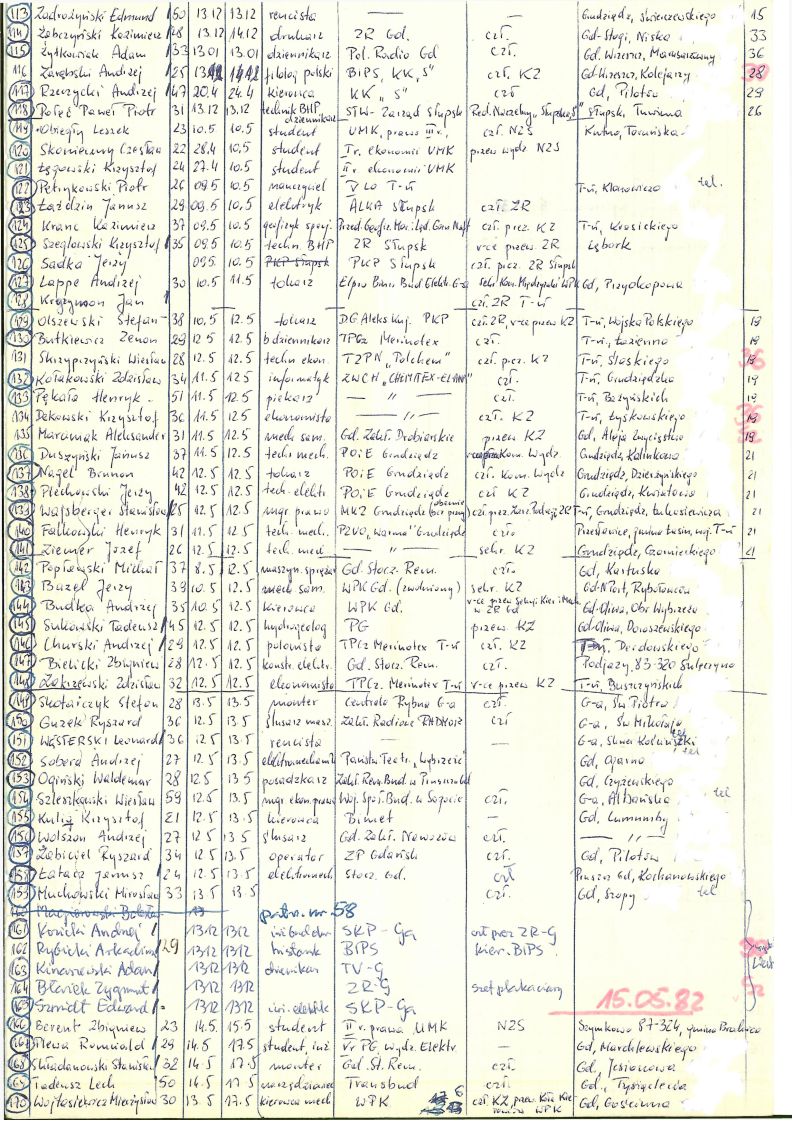 113 Zadrożyński Edmund 50 13.12 13.12 rencista — — Grudziądz, Świerczewskiego 15
114 Żabczyński Kazimierz 28 13.12 14.12 drukarz ZR Gd. czł. Gd-Stogi, Niska 33
115 Żytkowiak Adam 33 13.01 13.01 dziennikarz Pol. Radio Gd czł. Gd. Wrzeszcz, 36
116 Zarębski Andrzej 25 filolog polski BIPS, KK „S" czł. KZ Gd-Wrzeszcz, Kolejarzy 28
117 Rzeczycki Andrzej 47 20.4 24.4 kierowca KK „S" czł. Gd, Pilotów 29
118 Paweł Piotr 31 13.12 13.12 technik BHP dziennikarz STW- Zarząd Słupsk Red. Naczelny „ Słupsk, Tuwima 26
119 Obiegły Leszek 23 10.5 10.5 student UMK, prawo III r., czł. NZS Kutno, Toruńska
120 Skonieczny Czesław 22 28.4 10.5 student I r. ekonomii UMK przew wydz NZS
121 Łęgowski Krzysztof 24 27.4 10.5 student II r. ekonomii UMK
122 Pętrykowski Piotr 26 09.5 10.5 nauczyciel V LO T-ń T-ń, Klonowica tel.
123 Łaździn Janusz 29 09.5 10.5 elektryk ALKA Słupsk czł. ZR
124 Kranc Kazimierz 37 09.5 10.5 geofizyk czł. prez. KZ T-ń, Krasickiego
125 Szeglowski Krzysztof 35 09.5 10.5 techn. BHP ZR Słupsk v-ce przew. ZR Lębork
126 Sadka Jerzy 09.5 10.5 PKP Słupsk PKP Słupsk czł. prez. ZR Słupsk
127 Lappe Andrzej 30 10.5 11.5 tokarz Elpro Sekr. Kom. Gd, Przydkopowa
128 Krezymon Jan czł. ZR T-ń
129 Olszewski Stefan 38 10.5 12.5 tokarz DG Aleks. Kuj. PKP czł. ZR, v-ce przew KZ T-ń, Wojska Polskiego 19
130 Butkiewicz Zenon 29 12.5 12.5 b dziennikarz TPCz Merinotex czł. T-ń, Łazienna 19
131 Skrzypczyński Wiesław 28 12.5 12.5 techn. ekon. TZPN „Polchem" czł. p.cz. KZ T-ń, Słaskiego 19
132 Kołakowski Zdzisław 34 11.5 12.5 informatyk ZWCH „CHEMITEX-ELANA" czł. T-ń, Grudziądzka 19
133 Pękała Henryk 51 11.5 12.5 piekarz — " — czł. T-ń, Bażyńskich 19
134 Dekowski Krzysztof 36 11.5 12.5 ekonomista — " — czł. KZ T-ń, Łyskowskiego 19
135 Marciniak Aleksander 31 11.5 12.5 mech. sam. Gd. Zakł. Drobiarskie przew. KZ Gd, Aleja Zwycięstwa 19
136 Duszyński Janusz 37 11.5 12.5 techn. mech. POiE Grudziądz Wydz. Grudziądz, Kalinkowa 21
137 Nagel Brunon 42 12.5 12.5 tokarz POiE Grudziądz czł. Kom. Wydz. Grudziądz, Dzierżyńskiego 21
138 Plechowski Jerzy 42 12.5 12.5 tech. elektr. POiE Grudziądz czł KZ Grudziądz, Kwiatowa 21
139 Wajsberger Stanisław 25 12.5 12.5 mgr prawa MKZ Grudziądz T-ń, Grudziądz, Łukasiewicza 21
140 Falkowski Henryk 31 11.5 12.5 tech. mech. PZUO „Warma" Grudziądz czł. gmina Łasin, woj. T-ń 21
141 Ziemer Józef 26 12.5 12.5 tech. mech — " — sekr. KZ Grudziądz, Czarnieckiego 21
142 Popławski Michał 37 8.5 12.5 Gd. Stocz. Rem. czł. Gd, Kartuska
143 Bazel Jerzy 39 10.5 12.5 mech sam. WPK Gd. (zwolniony) sekr. KZ Gd-N Port, Rybołowców
144 Budka Andrzej 35 10.5 12.5 kierowca WPK Gd. v-ce przew w ZR Gd Gd-Oliwa, Obr Wybrzeża
145 Sukowski Tadeusz 45 12.5 12.5 hydrogeolog PG przew. KZ Gd-Oliwa, Doroszewskiego
146 Churski Andrzej 29 12.5 12.5 polonista TPCz Merinotex T-ń czł. KZ T-ń, Derdowskiego
147 Bielicki Zbigniew 28 12.5 12.5 konstr. elektr. Gd. Stocz. Rem. czł. Podjazy, 83-320 Sulęczyno
148 Zakrzewski Zdzisław 32 12.5 12.5 ekonomista TPCz. Merinotex T-ń v-ce przew KZ T-ń, Buszczyńskich
149 Skotarczyk Stefan 28 13.5 13.5 monter Centrala Rybna G-a czł. G-a, Św Piotra
150 Guzek Ryszard 36 12.5 13.5 ślusarz masz. Zakł. Radiowe RADMOR czł G-a, Św Mikołaja
151 WĄSTERSKI Leonard 36 12.5 13.5 rencista — — G-a,
152 Sobera Andrzej 27 12.5 13.5 elektromechanik Państw. Teatr „Wybrzeże" Gd, Ogarna tel
153 Ogiński Waldemar 28 12.5 13.5 posadzkarz Zakł. Rem. Bud. w Pruszcz Gd Gd, Czyżewskiego
154 Szleszkowski Wiesław 59 12.5 13.5 mgr ekon. prawa Woj. Społ. Bud. w Sopocie czł. G-a, Abrahama tel
155 Kulig Krzysztof 21 12.5 13.5 kierowca Bimet — Gd, Lumumby
156 Wolszon Andrzej 27 12.5 13.5 ślusarz Gd. Zakł. Nawozów czł. — " —
157 Żabicel Ryszard 34 12.5 13.5 operator ZP Gdańsk czł. Gd, Pilotów
158 Łatacz Janusz 24 12.5 13.5 elektromech. Stocz. Gd. czł Pruszcz Gd, Kochanowskiego
159 Muchowski Mirosław 33 13.5 13.5 czł. Gd, Szopy tel
patrz. nr. 58
161 Konicki Andrzej 13.12 13.12 SKP-Ga czł prez ZR-G
162 Rybicki Arkadiusz 29 13.12 13.12 historyk BIPS kier. BIPS
163 Kinaszewski Adam 13.12 13.12 dziennikarz TV-G
164 Błażek Zygmunt 13.12 13.12 ZR-G
165 Szmidt Edward 13.12 13.12 inż. elektr SKP-Ga 15.05.82
166 Berent Zbigniew 23 14.5 15.5 student II r. prawa UMK NZS Szynkowo 87-324, gmina
167 Plewa Romuald 29 14.5 17.5 student, inż V r PG, Wydz. Elektr — Gd, Marchlewskiego
168 Składanowski Stanisław 32 14.5 17.5 monter Gd. St. Rem. czł. Gd, Jesionowa
169 Tadeusz Lech 50 14.5 17.5 Transbud czł. Gd., Tysiąclecia
170 Wojtasiewicz Mieczysław 30 13.5 17.5 kierowca mech WPK czł. KZ, przew. Koła Kierowców WPK Gd, Gościnna